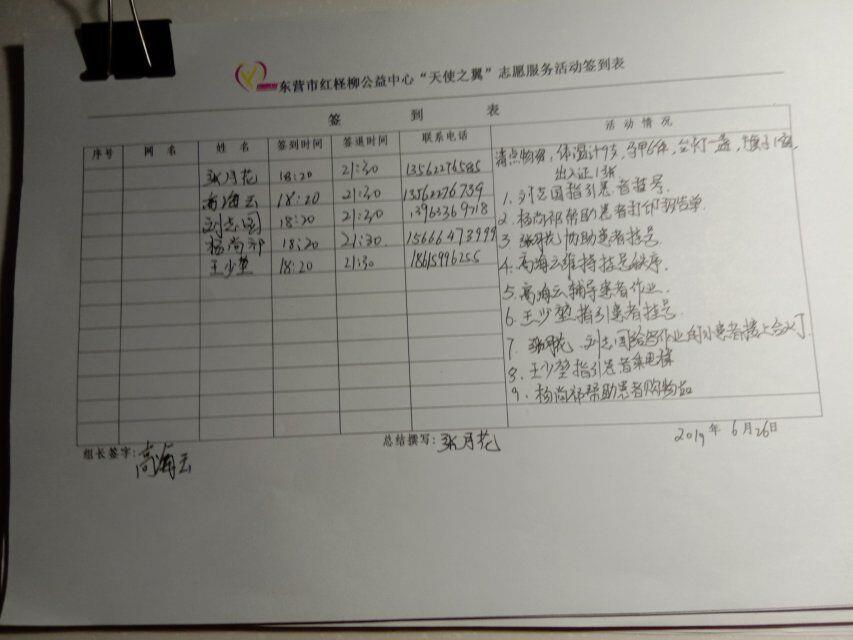 东营市红柽柳公益中心“天使之翼”志愿服务活动签到表
签 到 表
序号 网 名 姓 名 签到时间 签退时间 联系电话 活 动 情 况
张月花 18:20 21:30 13562276585
高海云 18:20 21:30 13562276739
刘志国 18:20 21:30 13963369718
杨尚祁 18:20 21:30 15666473999
王少堃 18:20 21:30 18615996255
清点物资,体温计9支,马甲6件,台灯一盏,
出入证1张
1. 刘志国指引患者挂号.
2. 杨尚祁帮助患者打印报告单.
3. 张月花协助患者挂号.
4. 高海云维持挂号秩序.
5. 高海云辅导患者作业.
6. 王少堃指引患者挂号.
7. 张月花、刘志国给写作业的小患者接上台灯
8. 王少堃指引患者乘电梯
9. 杨尚祁帮助患者购物品
组长签字: 高海云
总结撰写: 张月花
2019年 6月26日